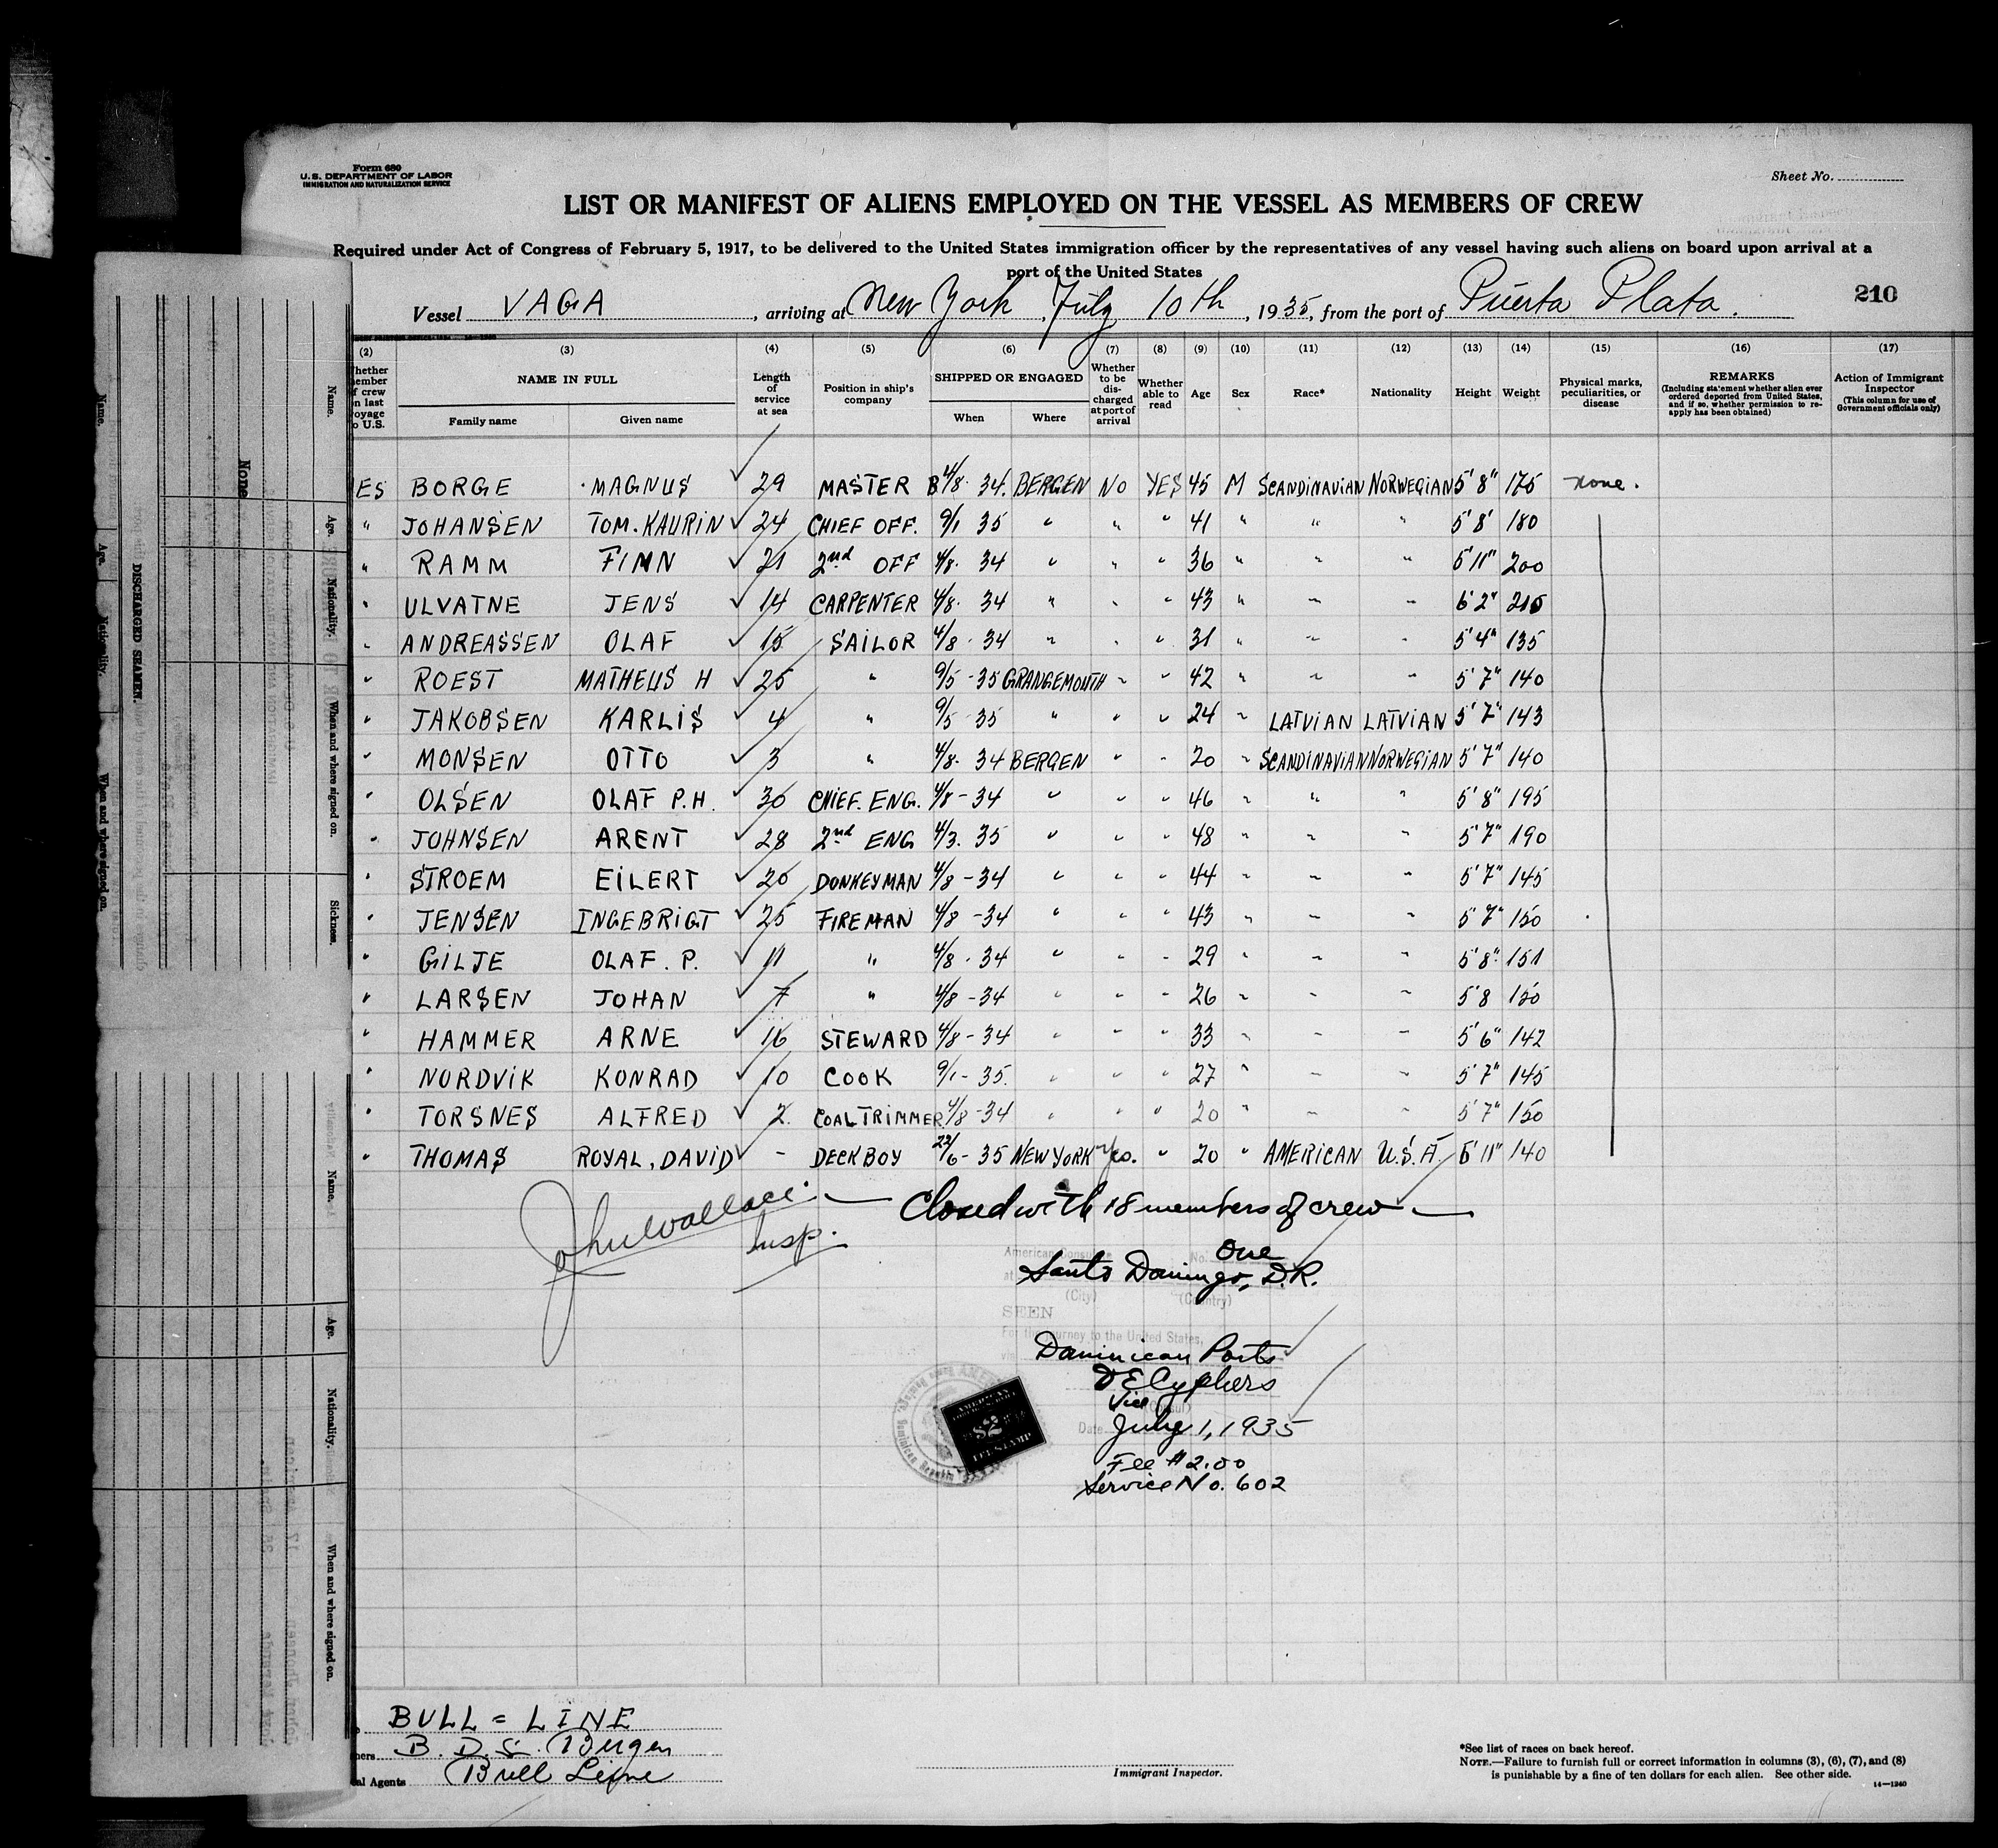 Form 680
U.S. DEPARTMENT OF LABOR
IMMIGRATION AND NATURALIZATION SERVICE
Sheet No.
LIST OR MANIFEST OF ALIENS EMPLOYED ON THE VESSEL AS MEMBERS OF CREW
Required under Act of Congress of February 5, 1917, to be delivered to the United States immigration officer by the representatives of any vessel having such aliens on board upon arrival at a
port of the United States
Vessel VAGA, arriving at New York, July 10th, 1935, from the port of Puerta Plata.
210
(2) (3) (4) (5) (6) (7) (8) (9) (10) (11) (12) (13) (14) (15) (16) (17)
NAME IN FULL
Family name Given name
Length of service at sea
Position in ship's company
SHIPPED OR ENGAGED
When Where
Whether to be discharged at port of arrival
Whether able to read
Age Sex Race* Nationality Height Weight
Physical marks, peculiarities, or disease
REMARKS
(Including statement whether alien ever ordered deported from United States, and if so, whether permission to reapply has been obtained)
Action of Immigrant Inspector
(This column for use of Government officials only)
ES BORGE MAGNUS 29 MASTER 4/8 34. BERGEN NO YES 45 M SCANDINAVIAN NORWEGIAN 5'8" 175 none.
" JOHANSEN TOM. KAURIN 24 CHIEF OFF. 9/1 35 " " " 41 " " " 5'8' 180
" RAMM FINN 21 2nd OFF 4/8. 34 " " " 36 " " " 5'11" 200
" ULVATNE JENS 14 CARPENTER 4/8. 34 " " " 43 " " " 6'2" 215
" ANDREASSEN OLAF 15 SAILOR 4/8 . 34 " " " 31 " " " 5'4" 135
" ROEST MATHEUS H 25 " 9/5 - 35 GRANGEMOUTH " " 42 " " " 5'7" 140
" JAKOBSEN KARLIS 4 " 9/5 35 " " " 24 " LATVIAN LATVIAN 5'7" 143
" MONSEN OTTO 3 " 4/8. 34 BERGEN " " 20 " SCANDINAVIAN NORWEGIAN 5'7" 140
" OLSEN OLAF P.H. 30 CHIEF. ENG. 4/8 - 34 " " " 46 " " " 5'8" 195
" JOHNSEN ARENT 28 2nd ENG 4/3. 35 " " " 48 " " " 5'7" 190
" STROEM EILERT 20 DONKEYMAN 4/8 - 34 " " " 44 " " " 5'7" 145
" JENSEN INGEBRIGT 25 FIREMAN 4/8 - 34 " " " 43 " " " 5'7" 150
" GILJE OLAF. P. 11 " 4/8 . 34 " " " 29 " " " 5'8" 151
" LARSEN JOHAN 7 " 4/8 - 34 " " " 26 " " " 5'8 150
" HAMMER ARNE 16 STEWARD 4/8 - 34 " " " 33 " " " 5'6" 142
" NORDVIK KONRAD 10 COOK 9/1 - 35. " " " 27 " " " 5'7" 145
" TORSNES ALFRED 2 COALTRIMMER 4/8 - 34 " " " 20 " " " 5'7" 150
" THOMAS ROYAL, DAVID - DECKBOY 22/6 - 35 NEW YORK Yes. " 20 " AMERICAN U.S.A. 5'11" 140
John Wallace Insp.
Closed with 18 members of crew
One
Santo Domingo, D.R.
American Consulate
No.
(City) (Country)
SEEN
For the journey to the United States,
Dominican Ports
D E Cyphers
Vice (Consul)
Date July 1, 1935
Fee $2.00
Service No. 602
AMERICAN
$2
FEE STAMP
BULL = LINE
B. D. S. Bergen
al Agents Bull Line
Immigrant Inspector.
*See list of races on back hereof.
NOTE.—Failure to furnish full or correct information in columns (3), (6), (7), and (8)
is punishable by a fine of ten dollars for each alien. See other side.
14—1240
Name. Age. Nationality. When and where signed on. Sickness.
None
DISCHARGED SEAMEN
Name. Age. Nationality. When and where signed on.